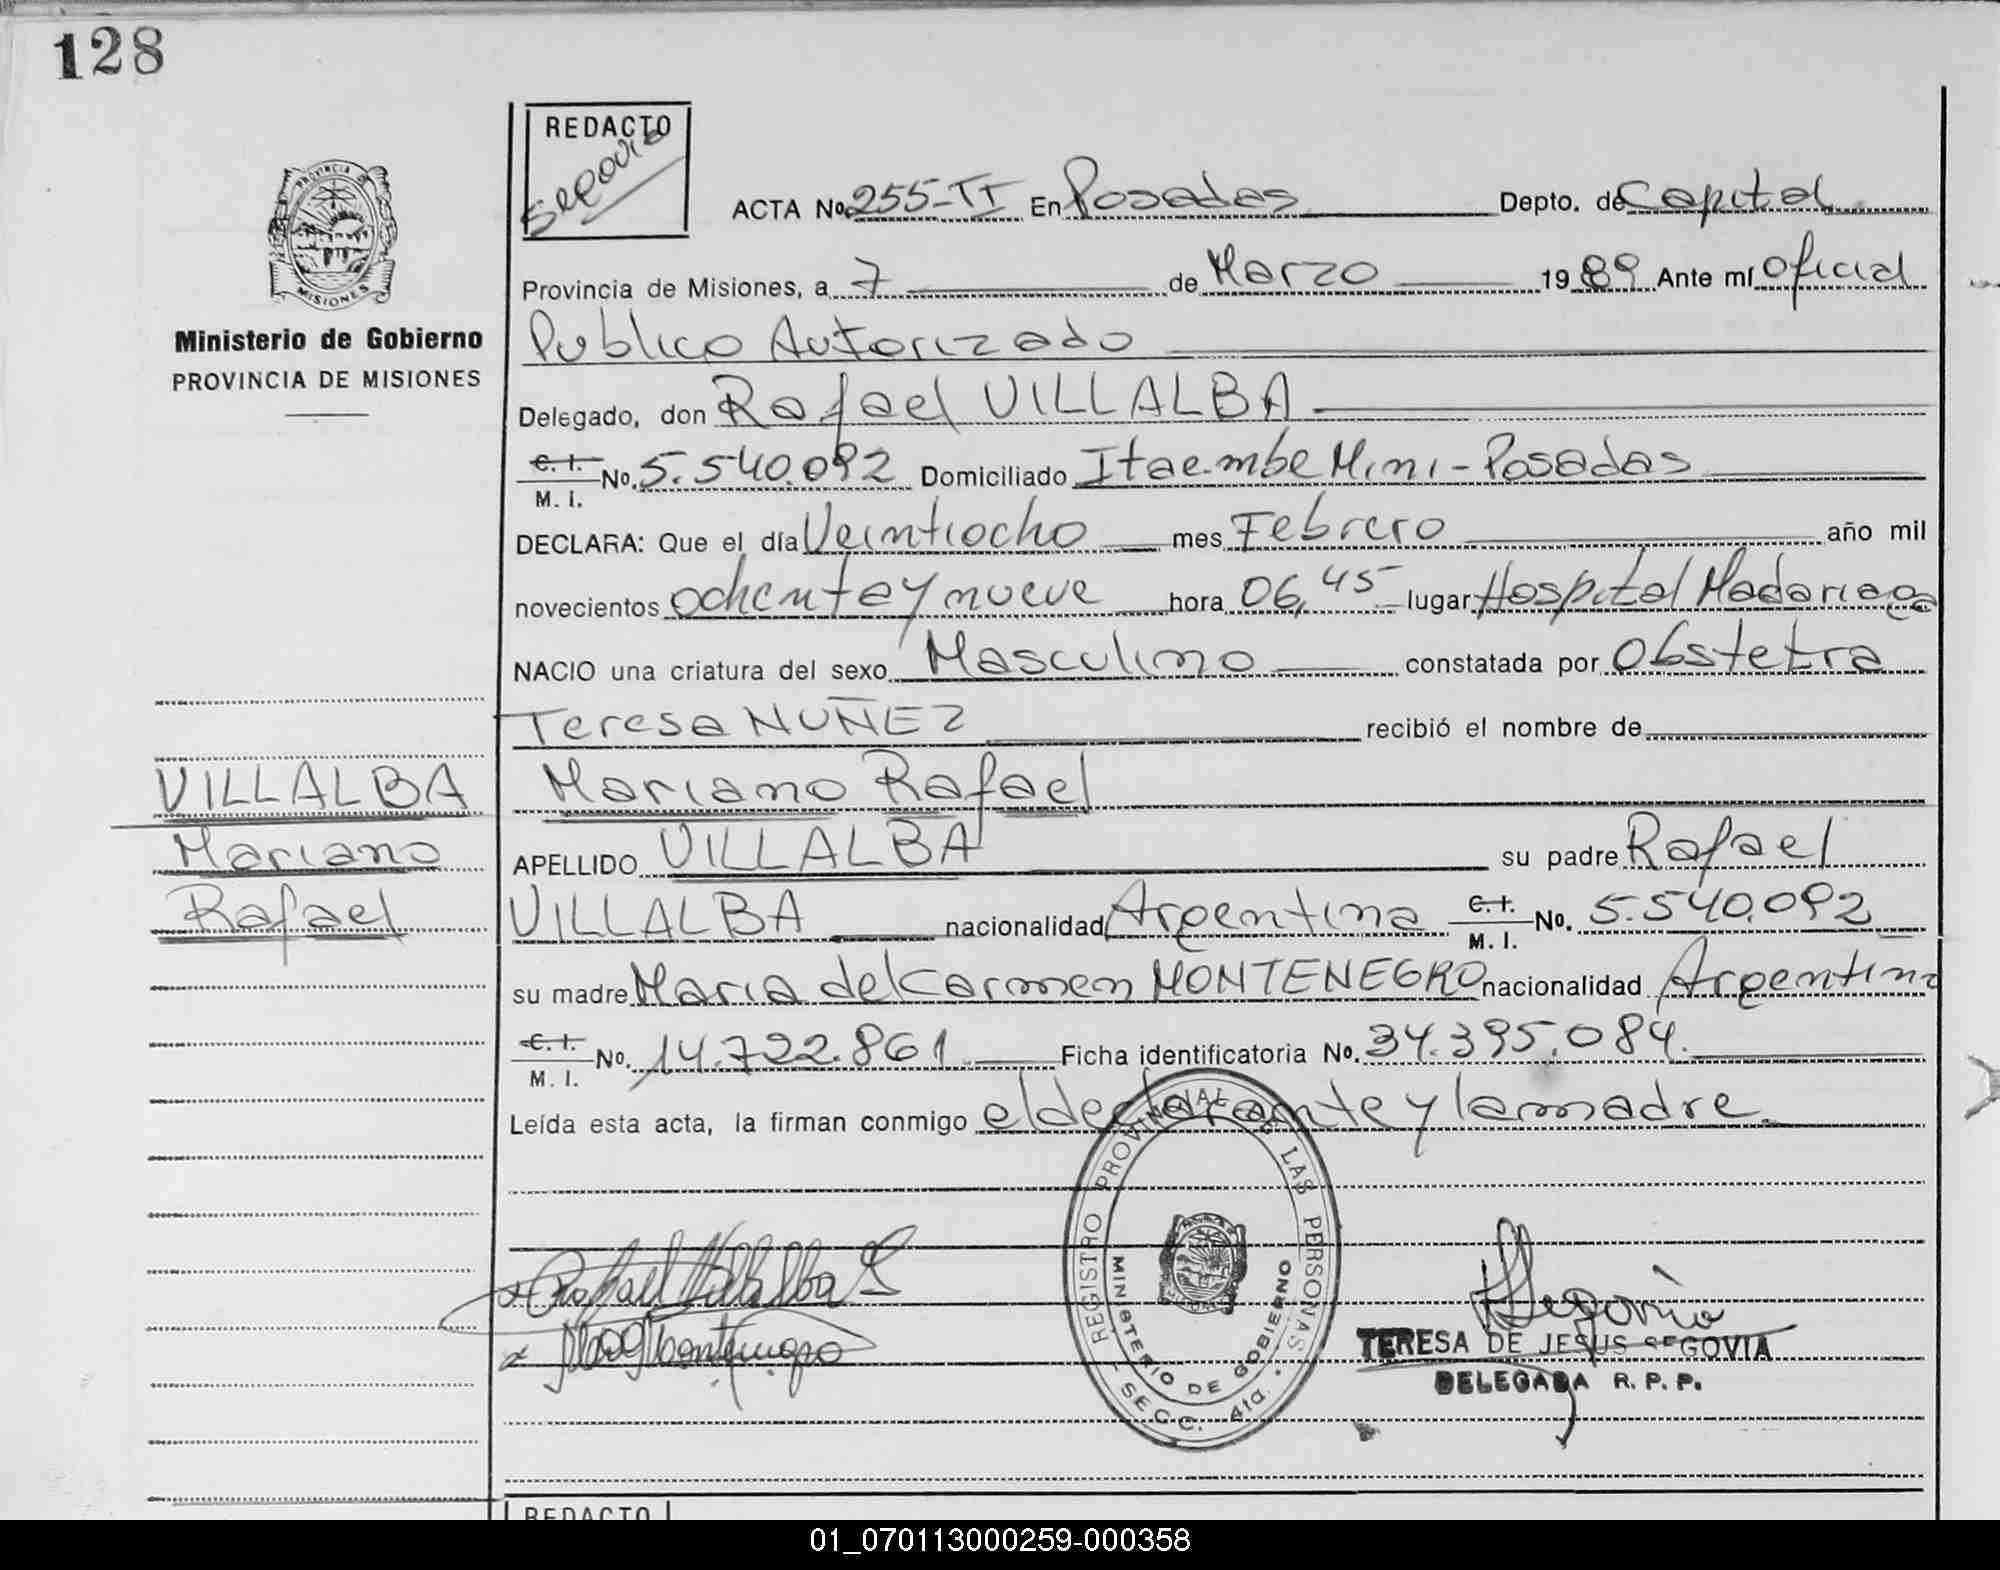 128
REDACTO
Segovia
PROVINCIA DE
MISIONES
Ministerio de Gobierno
PROVINCIA DE MISIONES
ACTA No. 255-II En Posadas Depto. de Capital
Provincia de Misiones, a 7 de Marzo 1989 Ante mí Oficial
Publico Autorizado
Delegado, don Rafael VILLALBA
C. I. M. I. No. 5.540.092 Domiciliado Itaembe Mini - Posadas
DECLARA: Que el día Veintiocho mes Febrero año mil
novecientos ochenta y nueve hora 06,45 lugar Hospital Madariaga
NACIO una criatura del sexo Masculino constatada por Obstetra
Teresa NUÑEZ recibió el nombre de
Mariano Rafael
APELLIDO VILLALBA su padre Rafael
VILLALBA nacionalidad Argentina C. I. M. I. No. 5.540.092
su madre Maria del Carmen MONTENEGRO nacionalidad Argentina
C. I. M. I. No. 14.722.861 Ficha identificatoria No. 34.395.084.
Leída esta acta, la firman conmigo el declarante y la madre.
VILLALBA
Mariano
Rafael
Rafael Villalba
Montenegro
REGISTRO PROVINCIAL DE LAS PERSONAS
MINISTERIO DE GOBIERNO
- SECC. 4ta. -
Segovia
TERESA DE JESUS SEGOVIA
DELEGADA R. P. P.
REDACTO
01_070113000259-000358